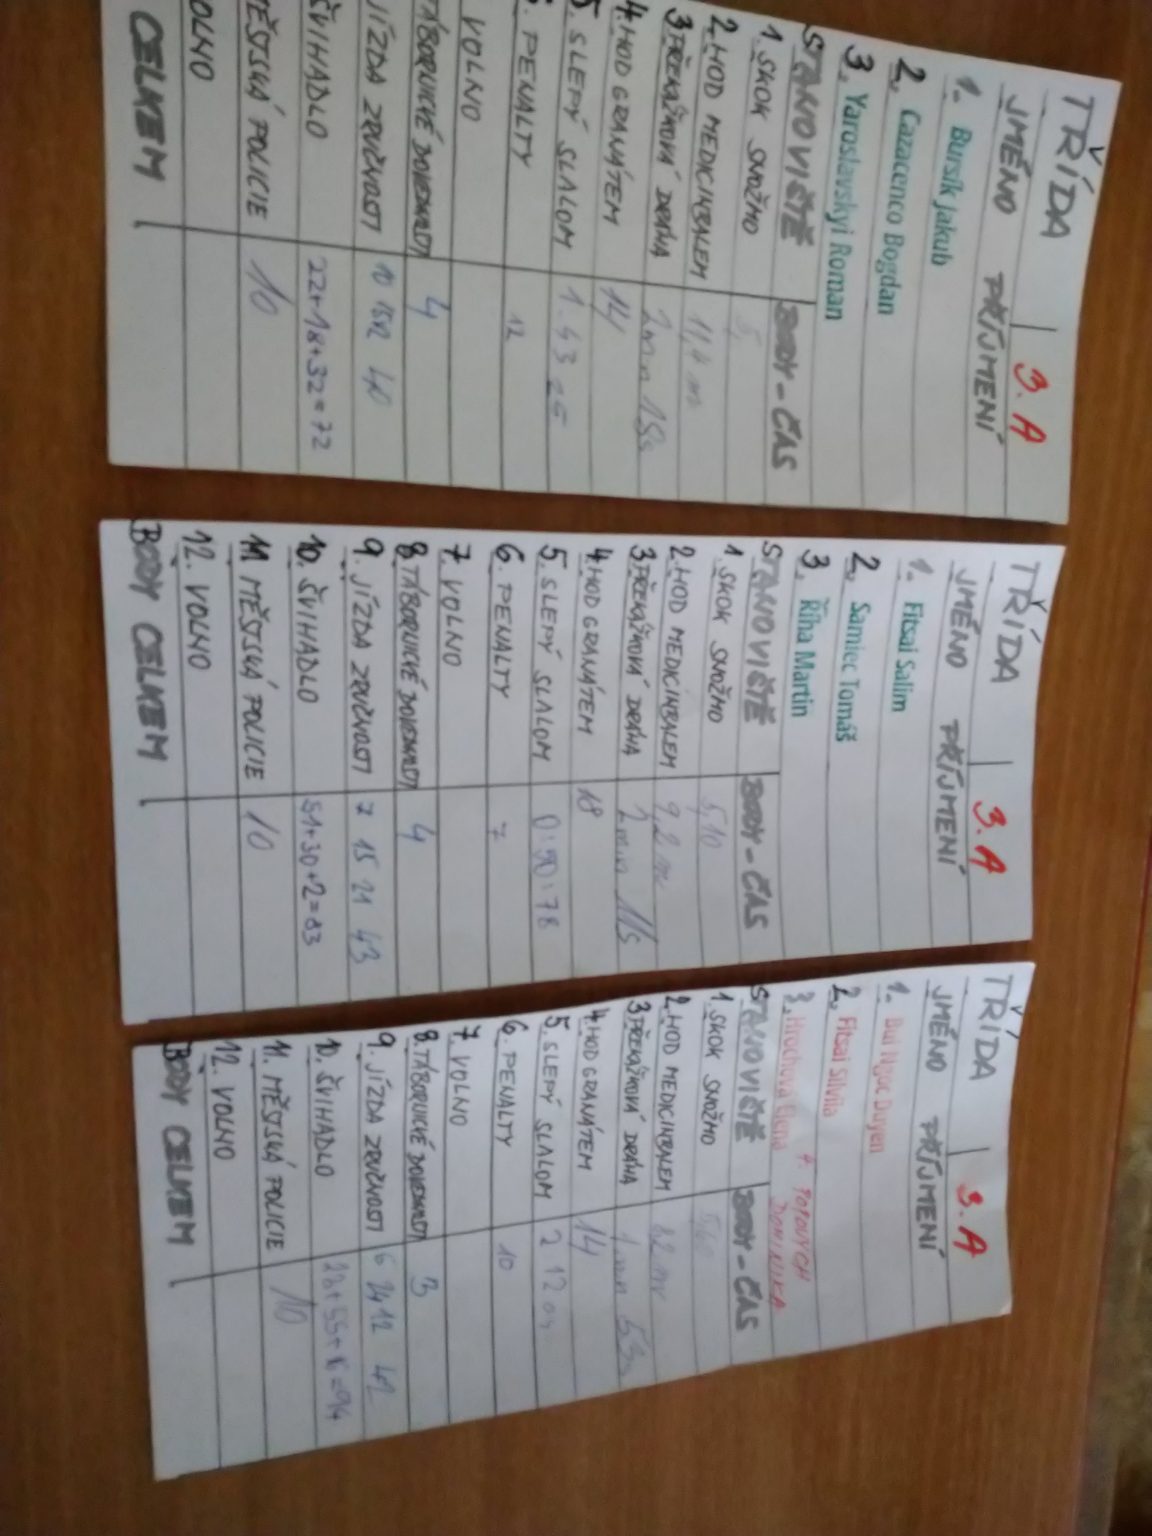 TŘÍDA 3. A
JMÉNO PŘÍJMENÍ
1. Bursík Jakub
2. Cazacenco Bogdan
3. Yaroslavskyi Roman
STANOVIŠTĚ BODY - ČAS
1. SKOK SNOŽMO 5,
2. HOD MEDICINBALEM 11,4 m
3. PŘEKÁŽKOVÁ DRÁHA 2 min 15s
4. HOD GRANÁTEM 14
5. SLEPÝ SLALOM 1.43 25
. PENALTY 12
VOLNO
TÁBORNICKÉ DOVEDNOSTI 4
JÍZDA ZRUČNOSTI 10 15 40
ŠVIHADLO 22+18+32=72
MĚSTSKÁ POLICIE 10
VOLNO
CELKEM
TŘÍDA 3. A
JMÉNO PŘÍJMENÍ
1. Fitsai Salim
2. Samiec Tomáš
3. Říha Martin
STANOVIŠTĚ BODY - ČAS
1. SKOK SNOŽMO 5,10
2. HOD MEDICINBALEM 9,2 m
3. PŘEKÁŽKOVÁ DRÁHA 2 min 11s
4. HOD GRANÁTEM 18
5. SLEPÝ SLALOM 0:50:78
6. PENALTY 7
7. VOLNO
8. TÁBORNICKÉ DOVEDNOSTI 4
9. JÍZDA ZRUČNOSTI 7 15 21 43
10. ŠVIHADLO 51+30+2=83
11. MĚSTSKÁ POLICIE 10
12. VOLNO
BODY CELKEM
TŘÍDA 3. A
JMÉNO PŘÍJMENÍ
1. Bui Ngoc Duyen
2. Fitsai Silviia
3. Hrochová Elena 4. POPOVYCH
DOMINIKA
STANOVIŠTĚ BODY - ČAS
1. SKOK SNOŽMO
2. HOD MEDICINBALEM 8,2 m
3. PŘEKÁŽKOVÁ DRÁHA 1 min 53s
4. HOD GRANÁTEM 14
5. SLEPÝ SLALOM 2 12 04
6. PENALTY 10
7. VOLNO
8. TÁBORNICKÉ DOVEDNOSTI 3
9. JÍZDA ZRUČNOSTI 6 24 12 42
10. ŠVIHADLO
11. MĚSTSKÁ POLICIE 10
12. VOLNO
BODY CELKEM